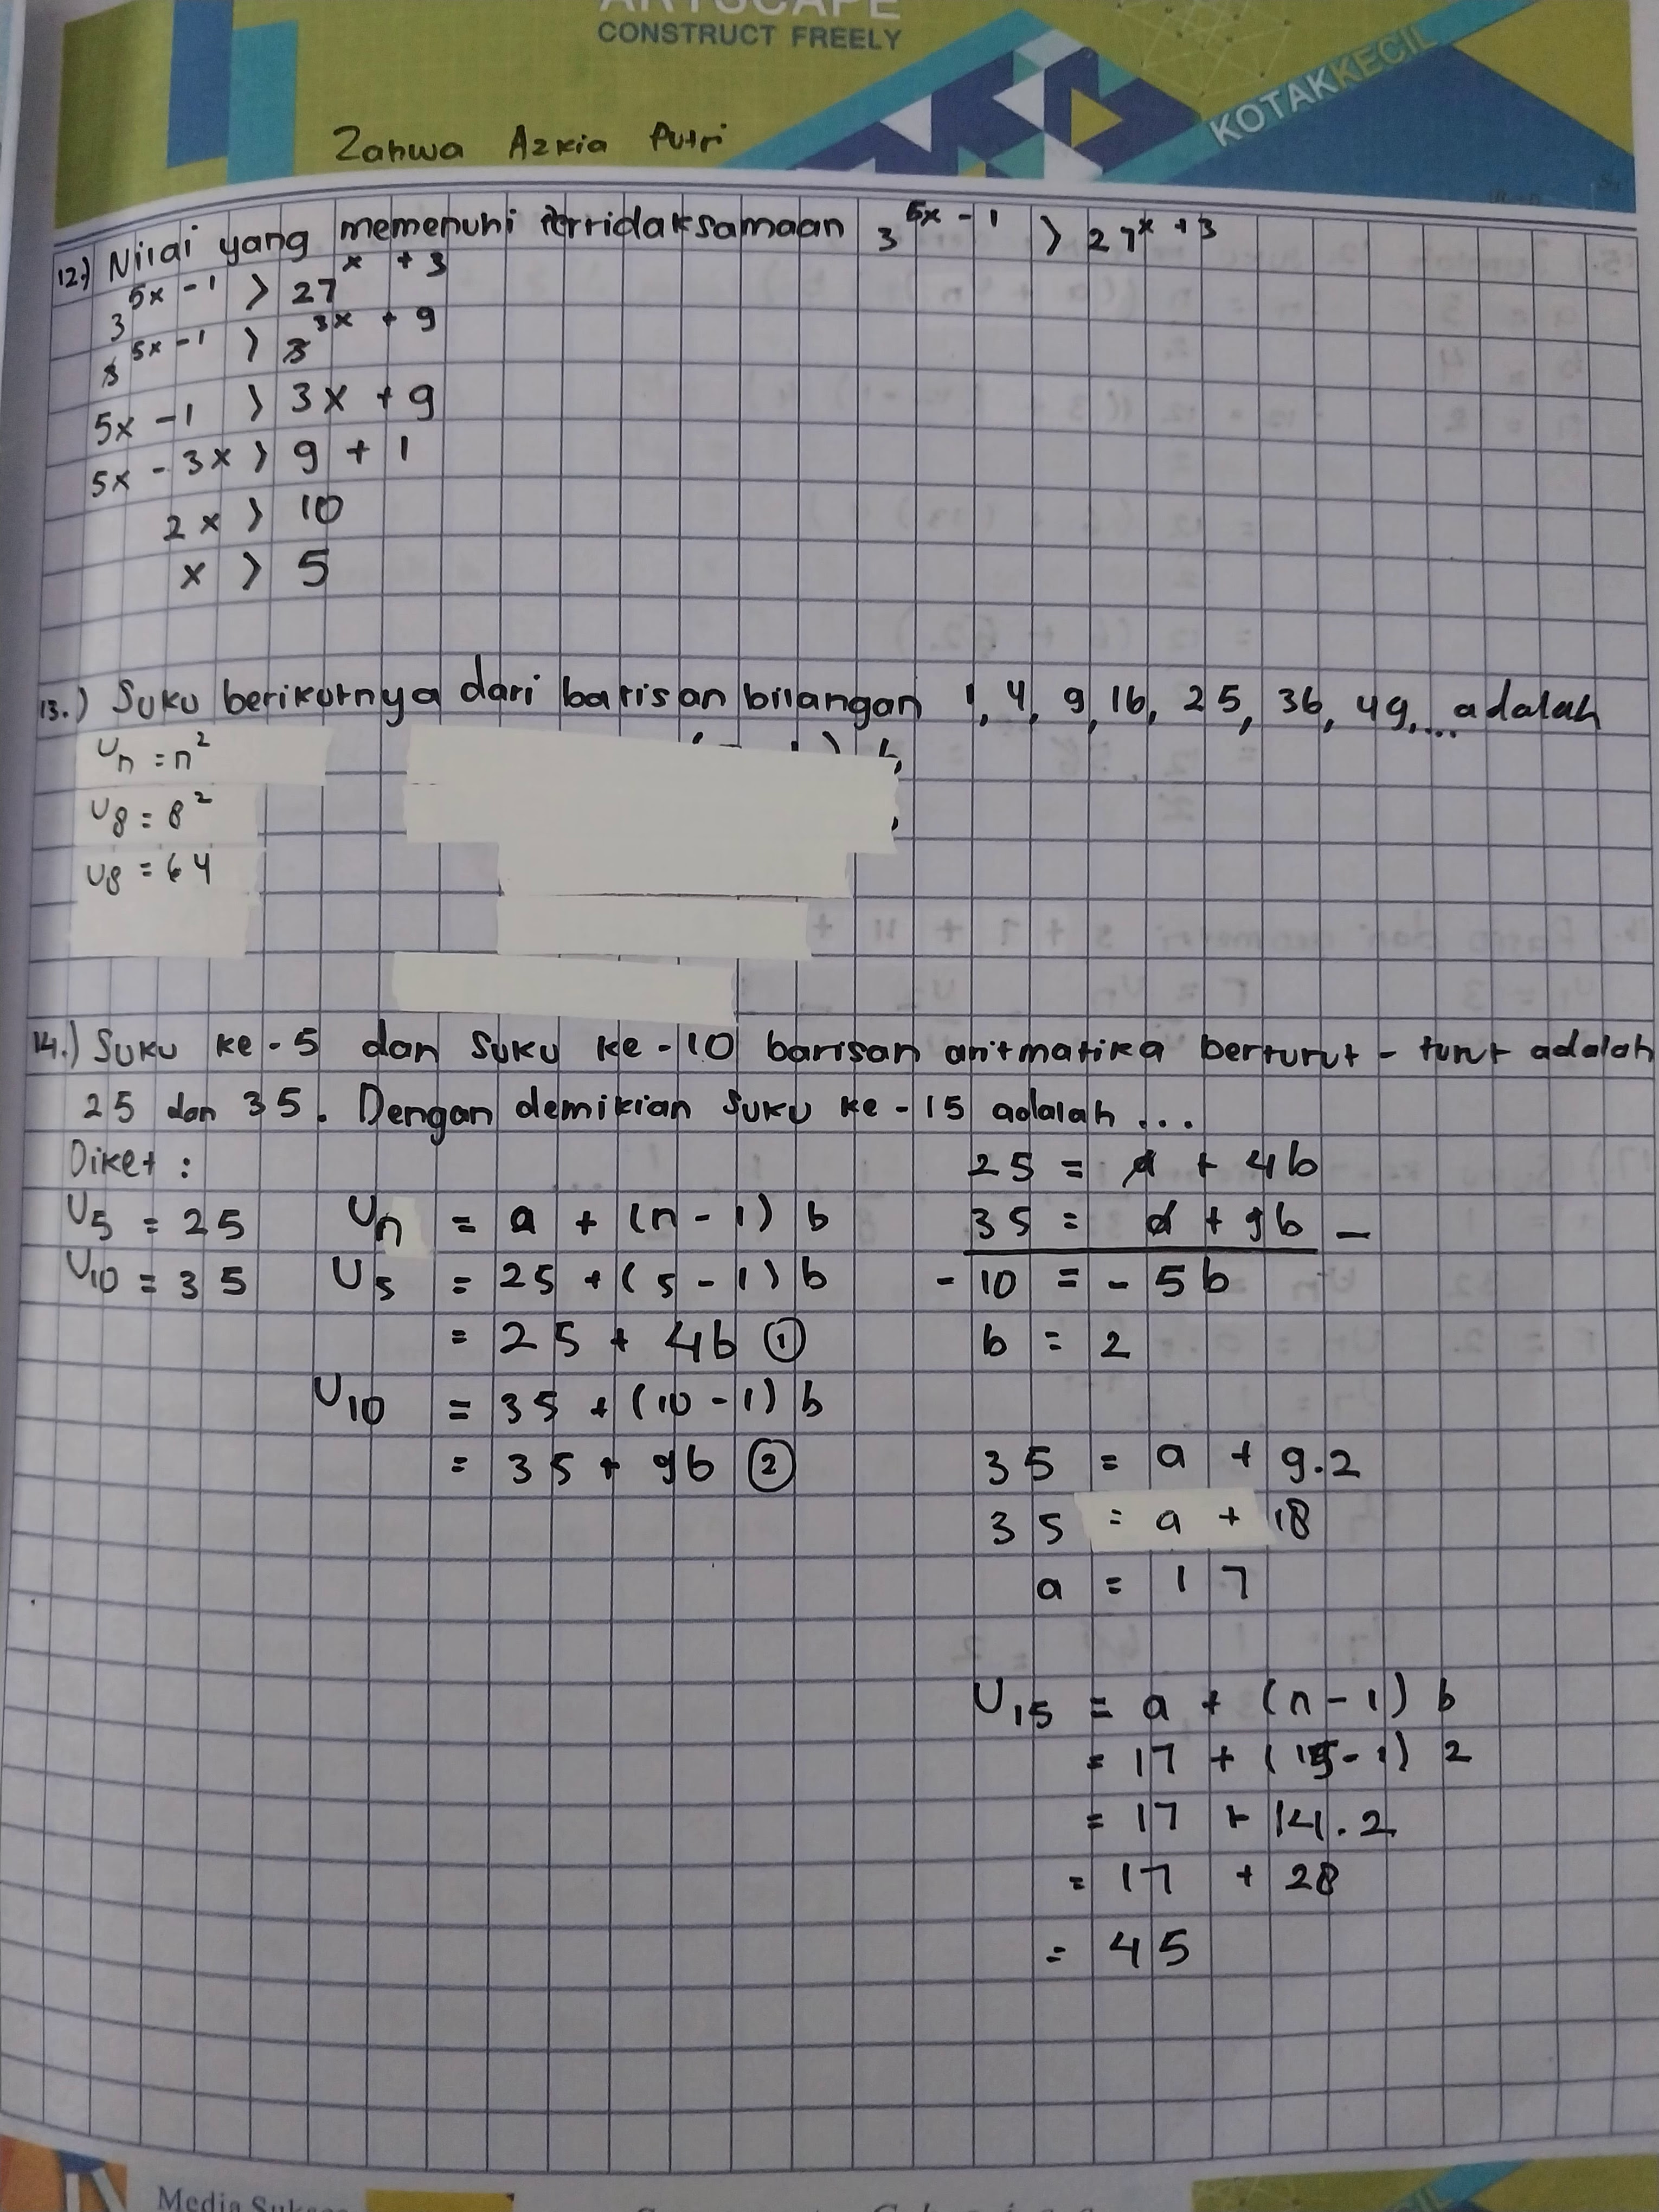 ARTSCAPE
CONSTRUCT FREELY
KOTAKKECIL
Zahwa Azkia Putri
12.) Nilai yang memenuhi pertidaksamaan 3^(5x - 1) > 27^(x + 3)
3^(5x - 1) > 27^(x + 3)
3^(5x - 1) > 3^(3x + 9)
5x - 1 > 3x + 9
5x - 3x > 9 + 1
2x > 10
x > 5
13.) Suku berikutnya dari barisan bilangan 1, 4, 9, 16, 25, 36, 49, ... adalah
Un = n²
U8 = 8²
U8 = 64
14.) Suku ke - 5 dan suku ke - 10 barisan aritmatika berturut - turut adalah
25 dan 35. Dengan demikian suku ke - 15 adalah ...
Diket :
U5 = 25
U10 = 35
Un = a + (n - 1) b
U5 = 25 + (5 - 1) b
= 25 + 4b ①
U10 = 35 + (10 - 1) b
= 35 + 9b ②
25 = a + 4b
35 = a + 9b -
- 10 = - 5b
b = 2
35 = a + 9.2
35 = a + 18
a = 17
U15 = a + (n - 1) b
= 17 + (15 - 1) 2
= 17 + 14 . 2
= 17 + 28
= 45
Media Sukses